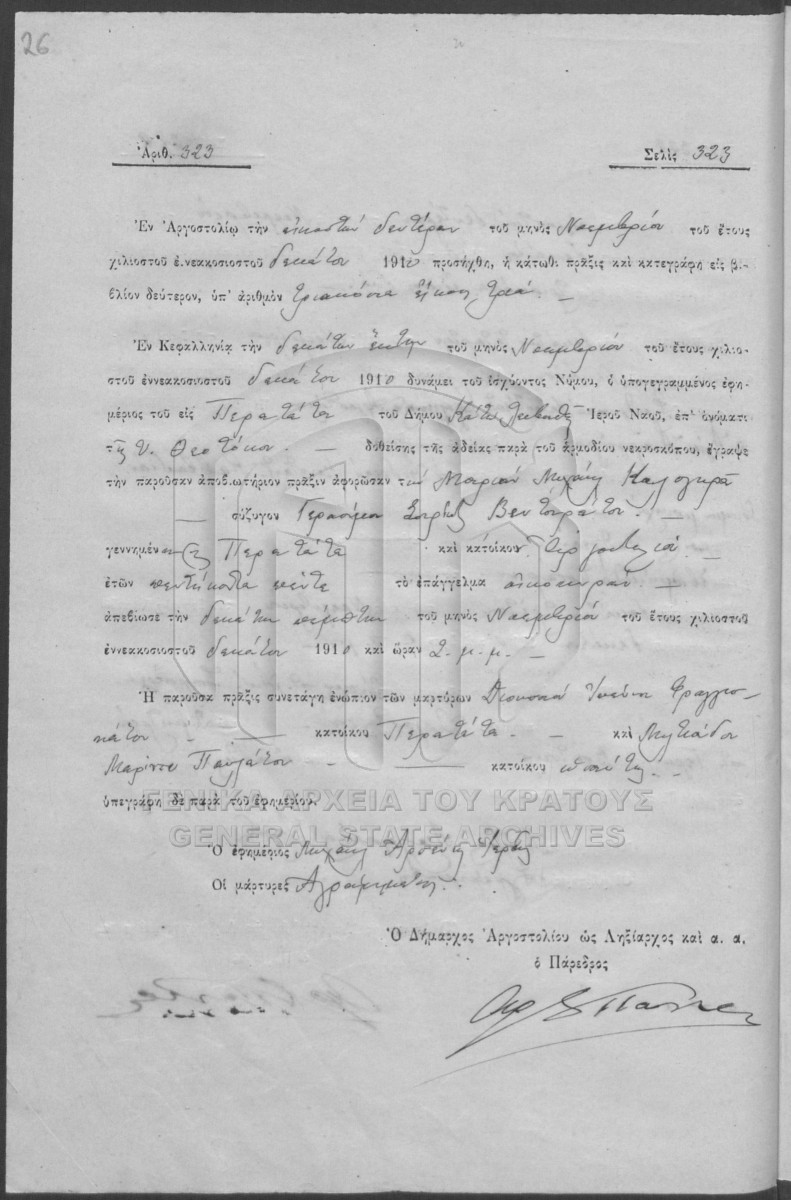 26
Ἀριθ. 323
Σελὶς 323
Ἐν Ἀργοστολίῳ τὴν εἰκοστὴν δευτέραν τοῦ μηνὸς Νοεμβρίου τοῦ ἔτους
χιλιοστοῦ ἐνεακοσιοστοῦ δεκάτου 1910 προσήχθη, ἡ κάτωθι πρᾶξις καὶ κατεγράφη εἰς βι-
βλίον δεύτερον, ὑπ' ἀριθμὸν τριακόσια εἴκοσι τρία. —
Ἐν Κεφαλληνίᾳ τὴν δεκάτην ἕκτην τοῦ μηνὸς Νοεμβρίου τοῦ ἔτους χιλιο-
στοῦ ἐννεακοσιοστοῦ δεκάτου 1910 δυνάμει τοῦ ἰσχύοντος Νόμου, ὁ ὑπογεγραμμένος ἐφη-
μέριος τοῦ εἰς Περατάτα τοῦ Δήμου Ἱεροῦ Ναοῦ, ἐπ' ὀνόματι
τῆς Υ. Θεοτόκου. — δοθείσης τῆς ἀδείας παρὰ τοῦ ἁρμοδίου νεκροσκόπου, ἔγραψε
τὴν παροῦσαν ἀποβιωτήριον πρᾶξιν ἀφορῶσαν τὴν Μαρίαν Μιχαὴλ Καλογηρᾶ
— σύζυγον Γερασίμου Βεντουράτου. —
γεννημένην εἰς Περατάτα καὶ κάτοικον
ἐτῶν πεντήκοντα πέντε τὸ ἐπάγγελμα οἰκοκυράν. —
ἀπεβίωσε τὴν δεκάτην πέμπτην τοῦ μηνὸς Νοεμβρίου τοῦ ἔτους χιλιοστοῦ
ἐννεακοσιοστοῦ δεκάτου 1910 καὶ ὥραν 2 μ. μ. —
Ἡ παροῦσα πρᾶξις συνετάγη ἐνώπιον τῶν μαρτύρων Διονυσίου Φραγγισ-
κάτου — κατοίκου Περατάτα — καὶ Μιλτιάδου
Μαρίνου Παυλάτου — κατοίκου —
ὑπεγράφη δὲ παρὰ τοῦ ἐφημερίου.
ΓΕΝΙΚΑ ΑΡΧΕΙΑ ΤΟΥ ΚΡΑΤΟΥΣ
GENERAL STATE ARCHIVES
Ὁ ἐφημέριος Μιχαὴλ Ἀρσένης Ἱερεύς
Οἱ μάρτυρες Ἀγράμματοι.
Ὁ Δήμαρχος Ἀργοστολίου ὡς Ληξίαρχος καὶ α. α.
ὁ Πάρεδρος